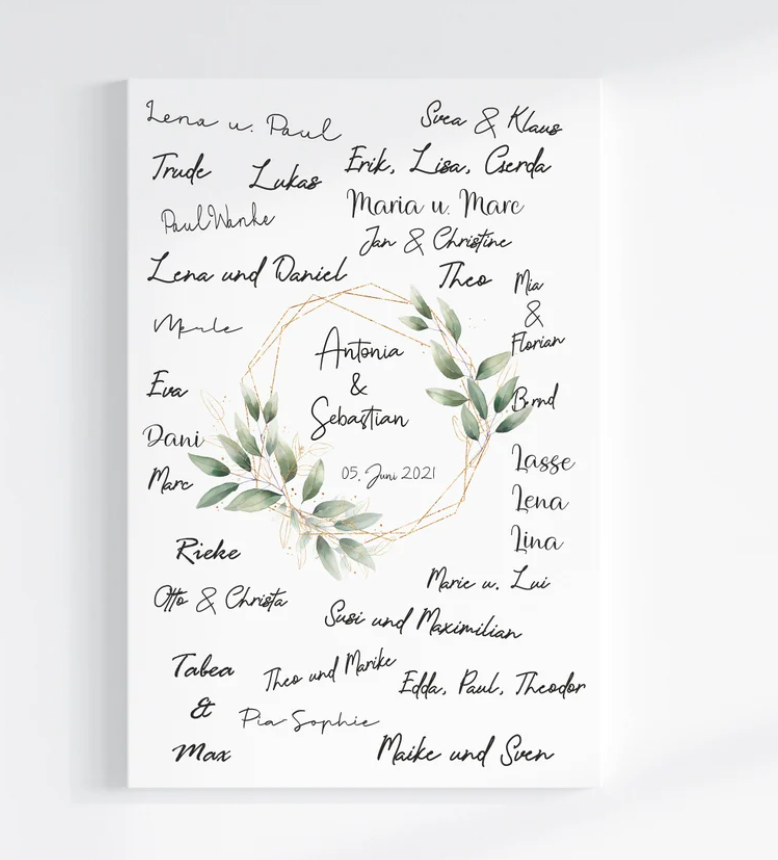 Lena u. Paul
Svea & Klaus
Trude
Lukas
Erik, Lisa, Cserda
Paul Wanke
Maria u. Marc
Jan & Christine
Lena und Daniel
Theo
Mia
&
Florian
Merle
Antonia
&
Sebastian
Eva
Bernd
Dani
05. Juni 2021
Marc
Lasse
Lena
Lina
Rieke
Marie u. Lui
Otto & Christa
Susi und Maximilian
Tabea
&
Max
Theo und Marike
Edda, Paul, Theodor
Pia Sophie
Maike und Sven